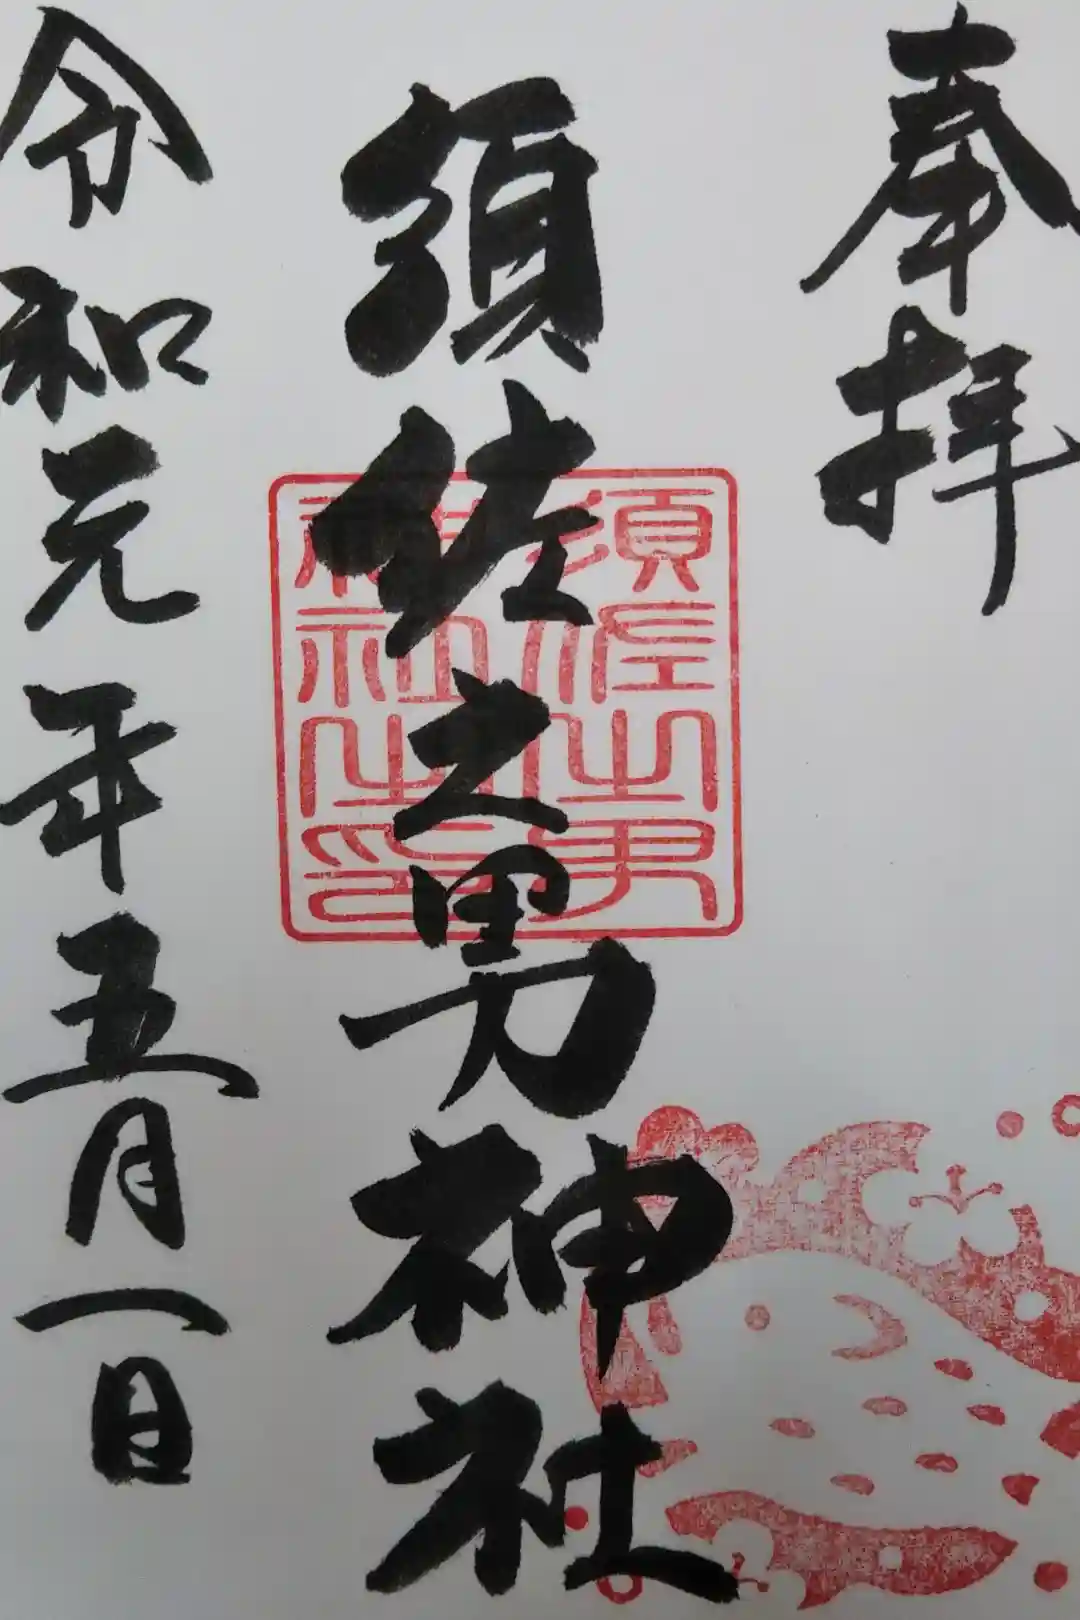 奉拝
須佐之男神社
須佐之男
神社之印
令和元年五月一日